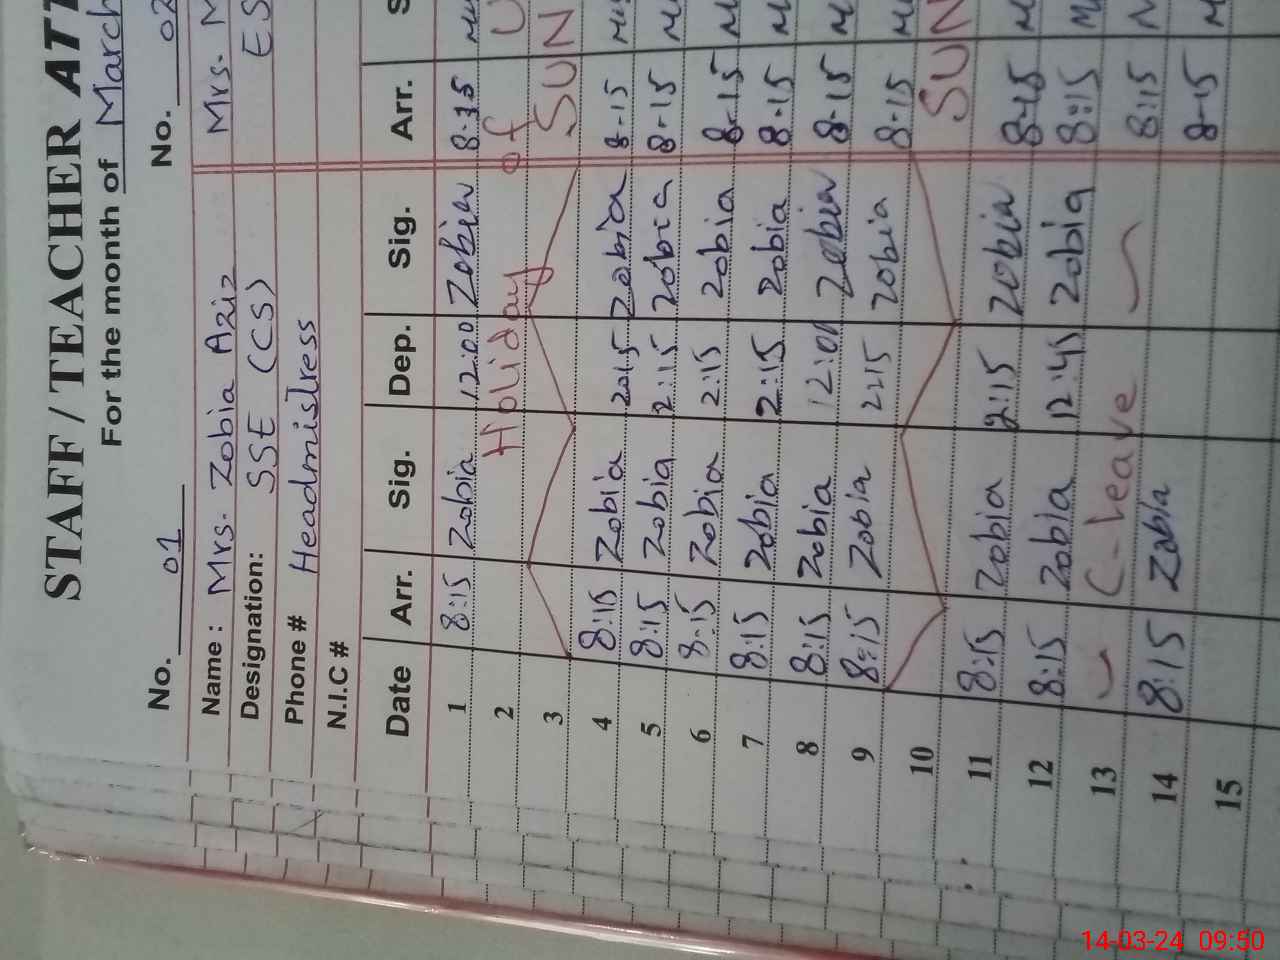 STAFF / TEACHER ATT
For the month of March
No. 01 No. 02
Name : Mrs. Zobia Aziz Mrs. M
Designation: SSE (CS) ES
Phone # Headmistress
N.I.C #
Date Arr. Sig. Dep. Sig. Arr. S
1 8:15 Zobia 12:00 Zobia 8:15
2 Holiday of U
3 SUN
4 8:15 Zobia 2015 Zobia 8-15
5 8:15 Zobia 2:15 Zobia 8-15
6 8:15 Zobia 2:15 Zobia 8-15
7 8:15 Zobia 2:15 Zobia 8-15
8 8:15 Zobia 12:00 Zobia 8-15
9 8:15 Zobia 2:15 Zobia 8-15
10 SUN
11 8:15 Zobia 2:15 Zobia 8-15
12 8:15 Zobia 12:45 Zobia 8:15
13 C-leave 8:15
14 8:15 Zobia 8-15
15
14-03-24 09:50